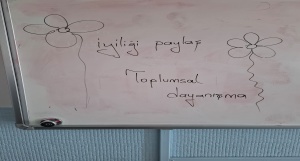 iyiliği paylaş
Toplumsal
dayanışma